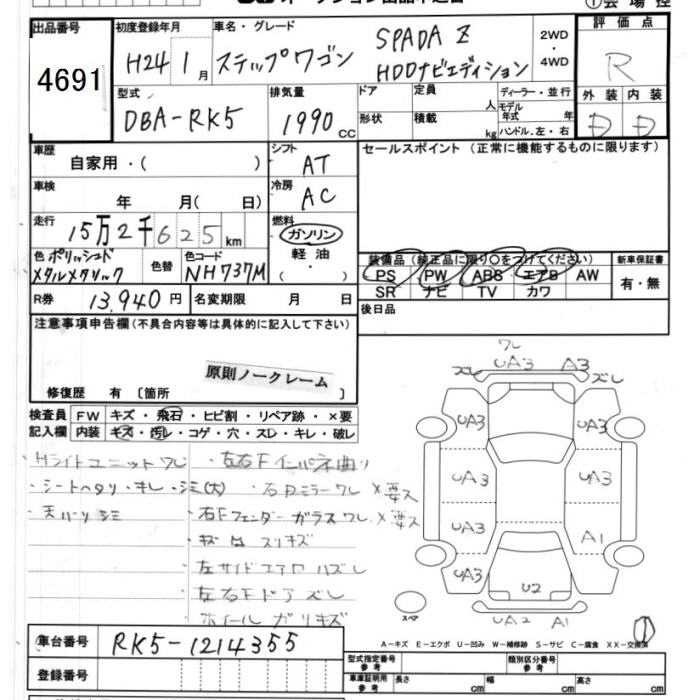 出品番号
4691
初度登録年月
H24 1月
車名・グレード
ステップワゴン
SPADA Z
HDDナビエディション
2WD
・
4WD
評価点
R
外装 内装
D D
型式
DBA-RK5
排気量
1990 cc
ドア
形状
定員 人
積載 kg
ディーラー・並行
モデル年式 年
ハンドル.左・右
車歴
自家用・( )
シフト
AT
セールスポイント(正常に機能するものに限ります)
車検
年 月( 日)
冷房
AC
走行
15万2千625km
燃料
ガソリン
軽油
・
( )
色 ポリッシュド
メタルメタリック
色替
色コード
NH737M
装備品(純正品に限り○をつけてください)
PS PW ABS エアB AW
SR ナビ TV カワ
新車保証書
有・無
R券 13,940円
名変期限 月 日
後日品
注意事項申告欄(不具合内容等は具体的に記入して下さい)
原則ノークレーム
修復歴 有〔箇所 〕
検査員
記入欄
FW キズ・飛石・ヒビ割・リペア跡・×要
内装 キズ・汚レ・コゲ・穴・スレ・キレ・破レ
・Hライトユニットワレ
・左右Fインパネ曲り
・シートヘタリ・キレ・シミ(大)
・右Dミラーワレ ×要ス
・天バリシミ
・右Fフェンダーガラスワレ ×要ス
スリキズ
左サイドエアロハズレ
左右Fドアズレ
ホイールガリキズ
ワレ
ズレ UA3 A3 ズレ
UA3 UA3
UA3 UA3
UA3 A1
UA3
U2
UA2 A1
スペア
A-キズ E-エクボ U-凹み W-補修跡 S-サビ C-腐食 XX-交換済
車台番号 RK5-1214355
登録番号
型式指定番号
参考
類別区分番号
参考
車庫証明用
参考
長さ cm 幅 cm 高さ cm